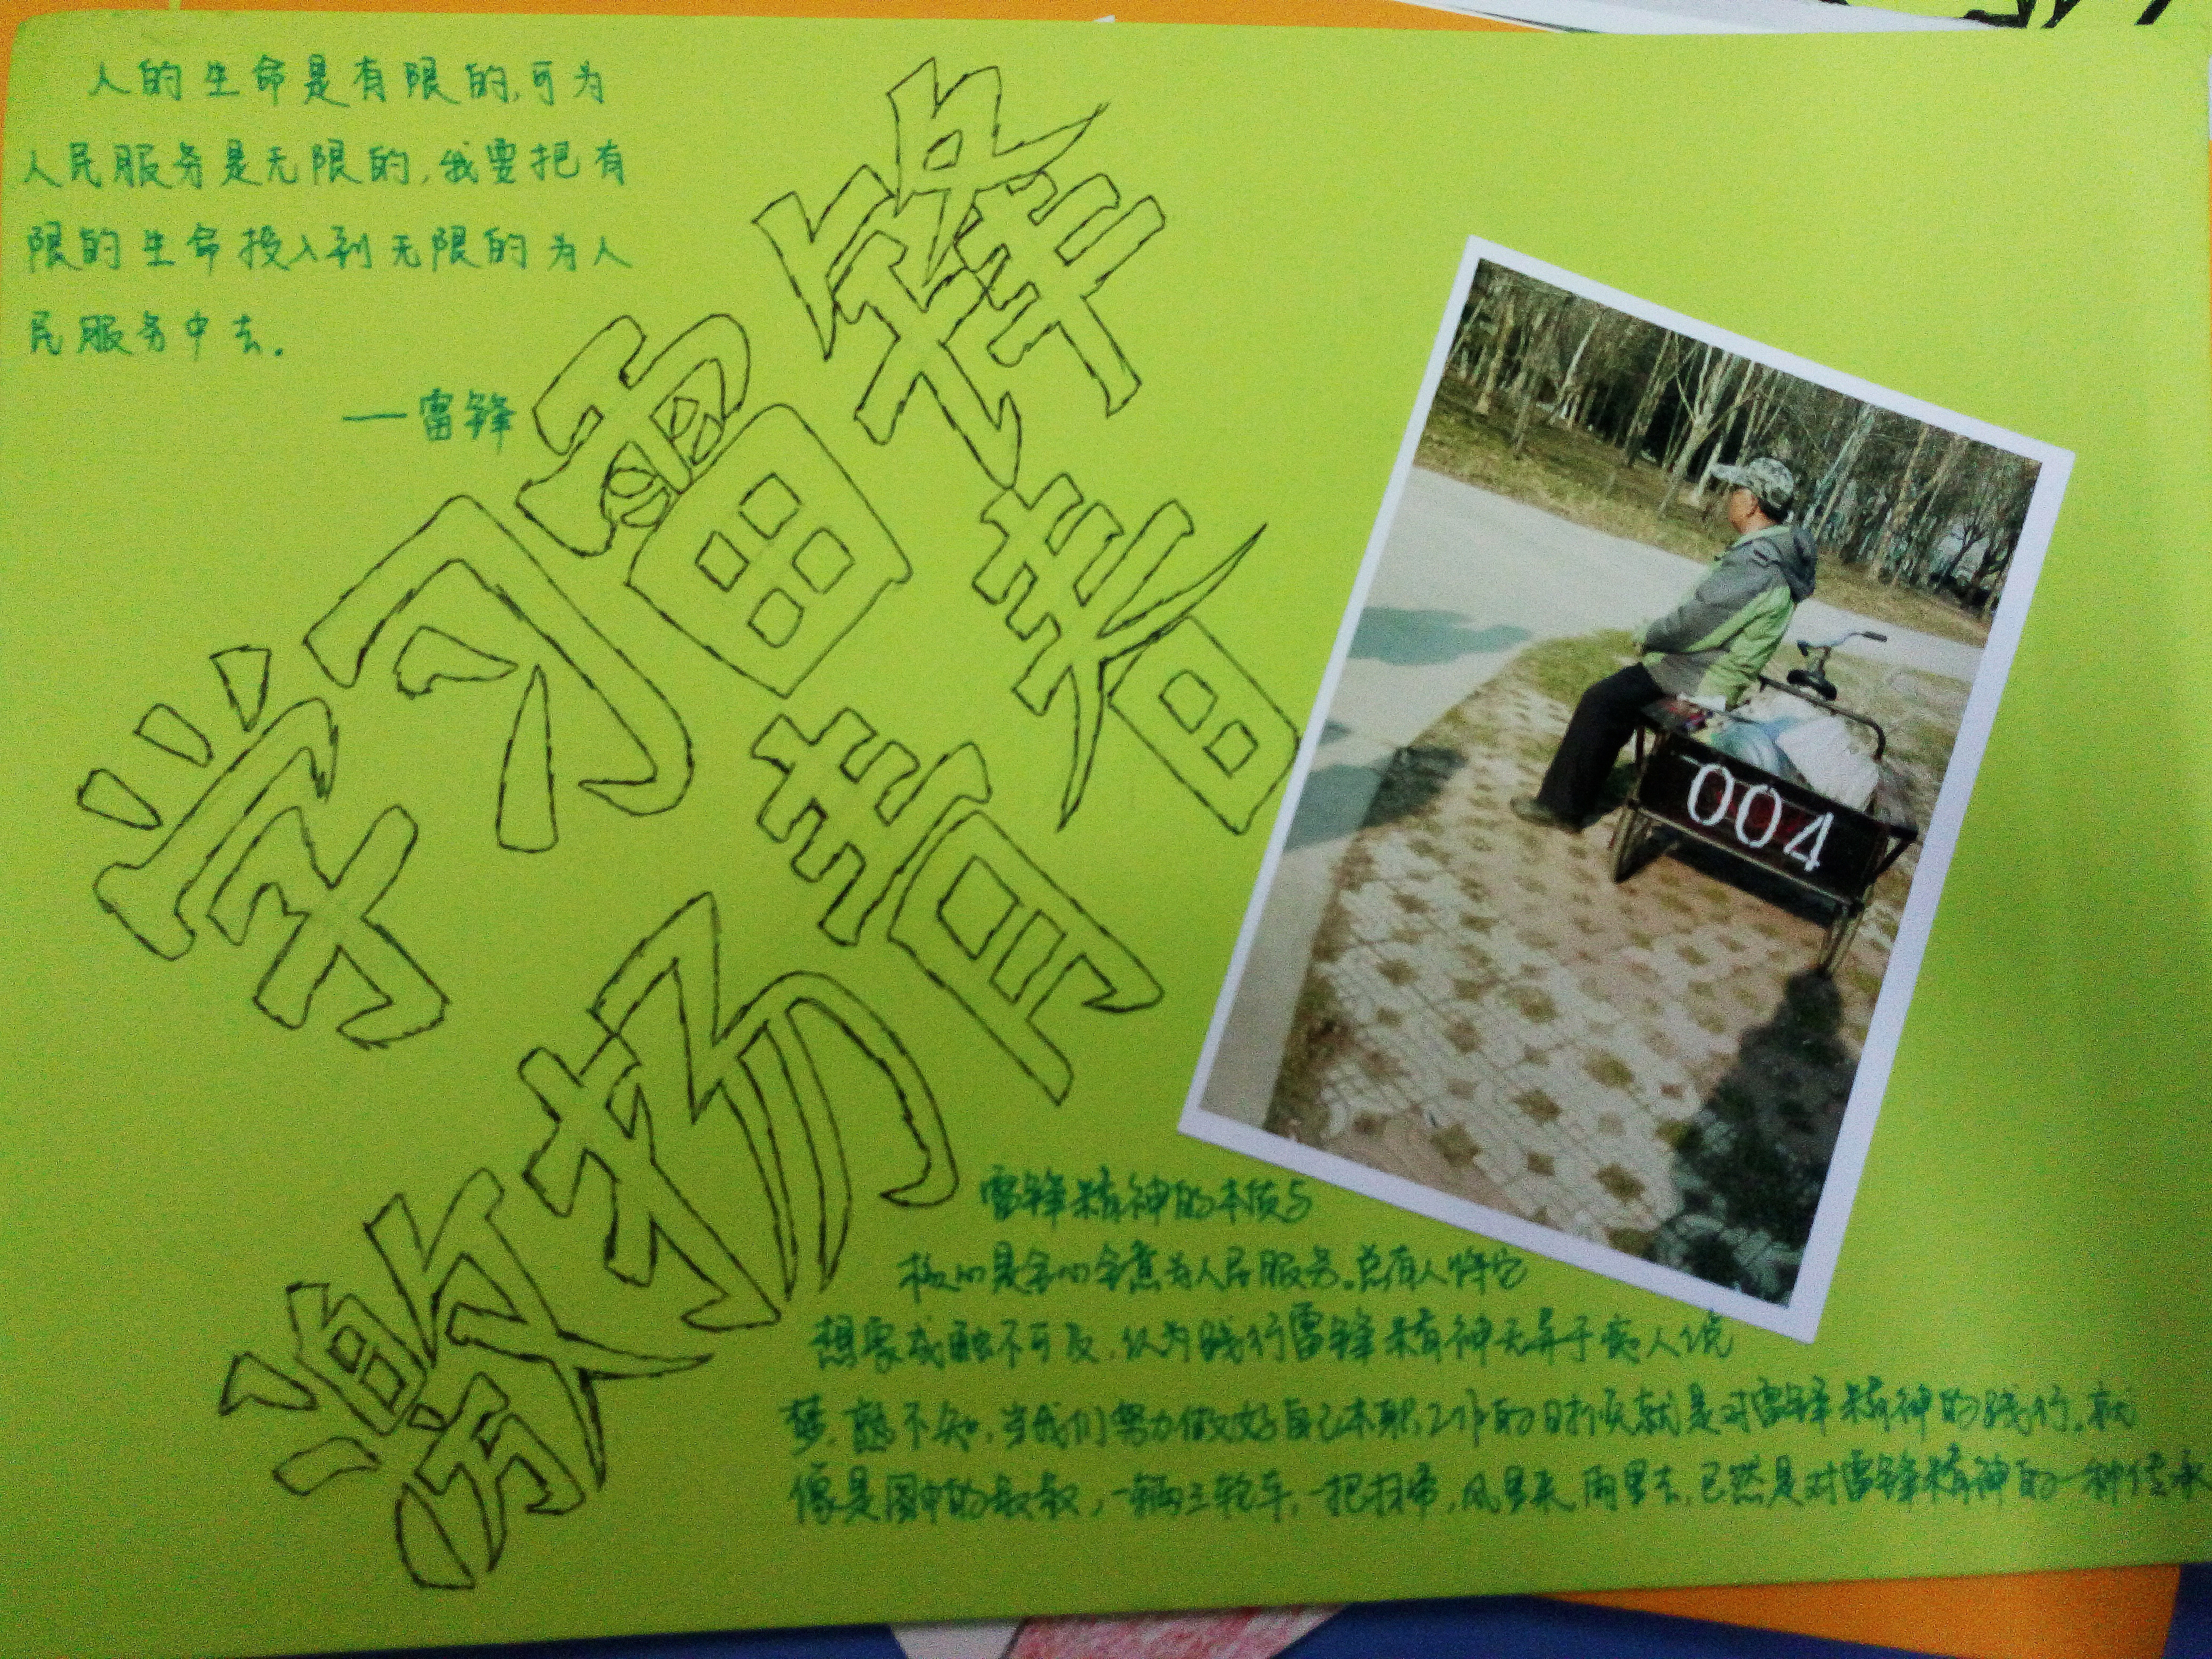 人的生命是有限的,可为
人民服务是无限的,我要把有
限的生命投入到无限的为人
民服务中去.
—雷锋
学习雷锋著
激扬青
004
雷锋精神的本质与
核心是全心全意为人民服务.总有人将它
想象成触不可及,认为践行雷锋精神无异于痴人说
梦,憨不知,当我们努力做好自己本职工作的时候就是对雷锋精神的践行.就
像是图中的叔叔,一辆三轮车,一把扫帚,风里来,雨里去,已然是对雷锋精神的一种传承